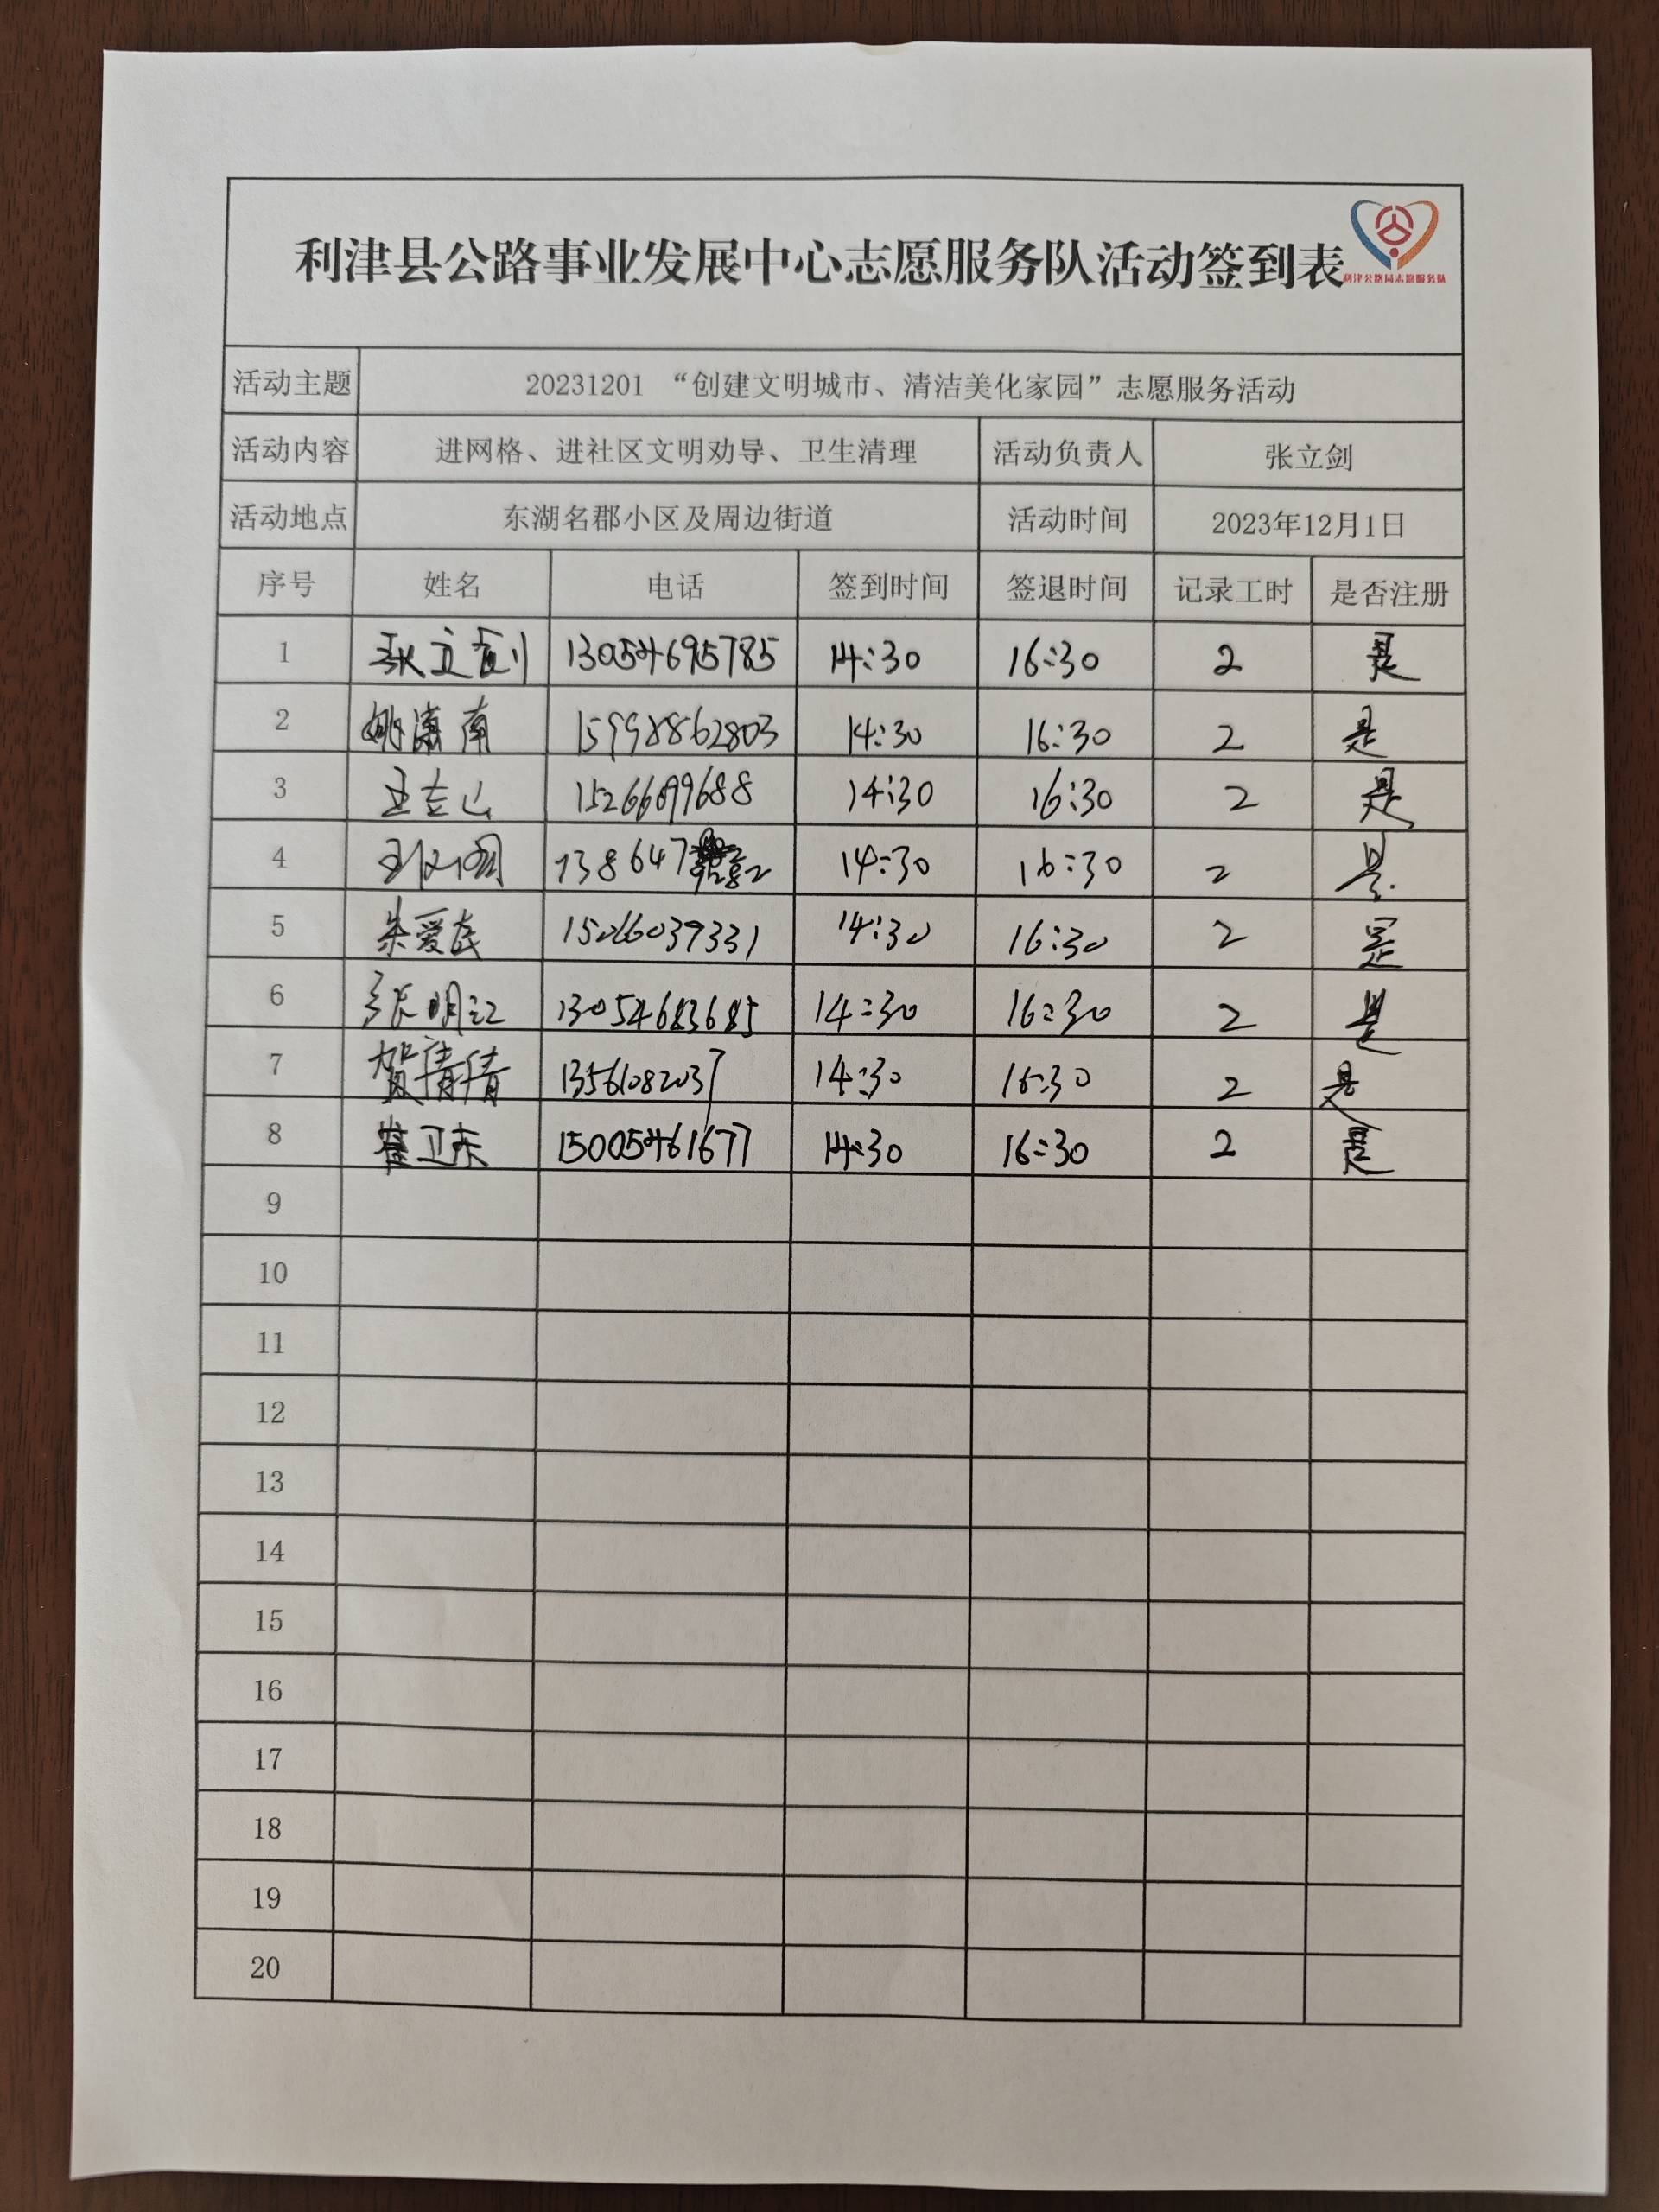 利津县公路事业发展中心志愿服务队活动签到表
利津公路局志愿服务队
活动主题 20231201 “创建文明城市、清洁美化家园”志愿服务活动
活动内容 进网格、进社区文明劝导、卫生清理 活动负责人 张立剑
活动地点 东湖名郡小区及周边街道 活动时间 2023年12月1日
序号 姓名 电话 签到时间 签退时间 记录工时 是否注册
1 张立剑 13054695785 14:30 16:30 2 是
2 姚潇南 15998862803 14:30 16:30 2 是
3 15266099688 14:30 16:30 2 是
4 138647 14:30 16:30 2 是
5 朱爱民 15066039331 14:30 16:30 2 是
6 张明江 13054683685 14:30 16:30 2 是
7 贺倩倩 13561082037 14:30 16:30 2 是
8 崔卫东 15005461677 14:30 16:30 2 是
9
10
11
12
13
14
15
16
17
18
19
20